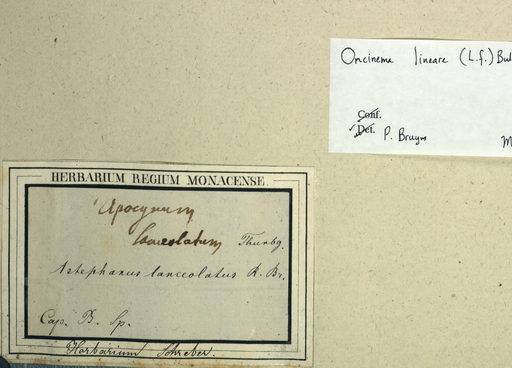 Oncinema lineare (L.f.) Bul
Conf.
✓ Det. P. Bruyns
M
HERBARIUM REGIUM MONACENSE.
Apocynum
lanceolatum Thunbg.
Astephanus lanceolatus R. Br.
Cap. B. Sp.
Herbarium Schreber.